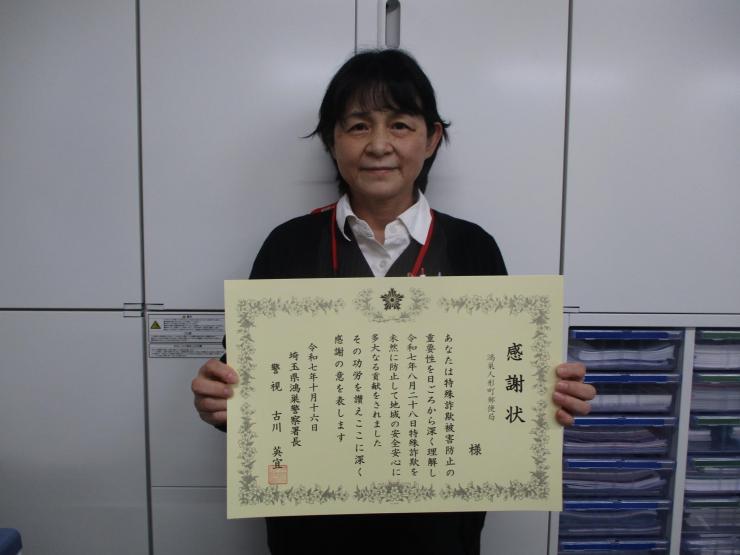 感謝状
鴻巣人形町郵便局
様
あなたは特殊詐欺被害防止の
重要性を日ごろから深く理解し
令和七年八月二十八日特殊詐欺を
未然に防止して地域の安全安心に
多大なる貢献をされました
その功労を讃えここに深く
感謝の意を表します
令和七年十月十六日
埼玉県鴻巣警察署長
警視 古川 英宜